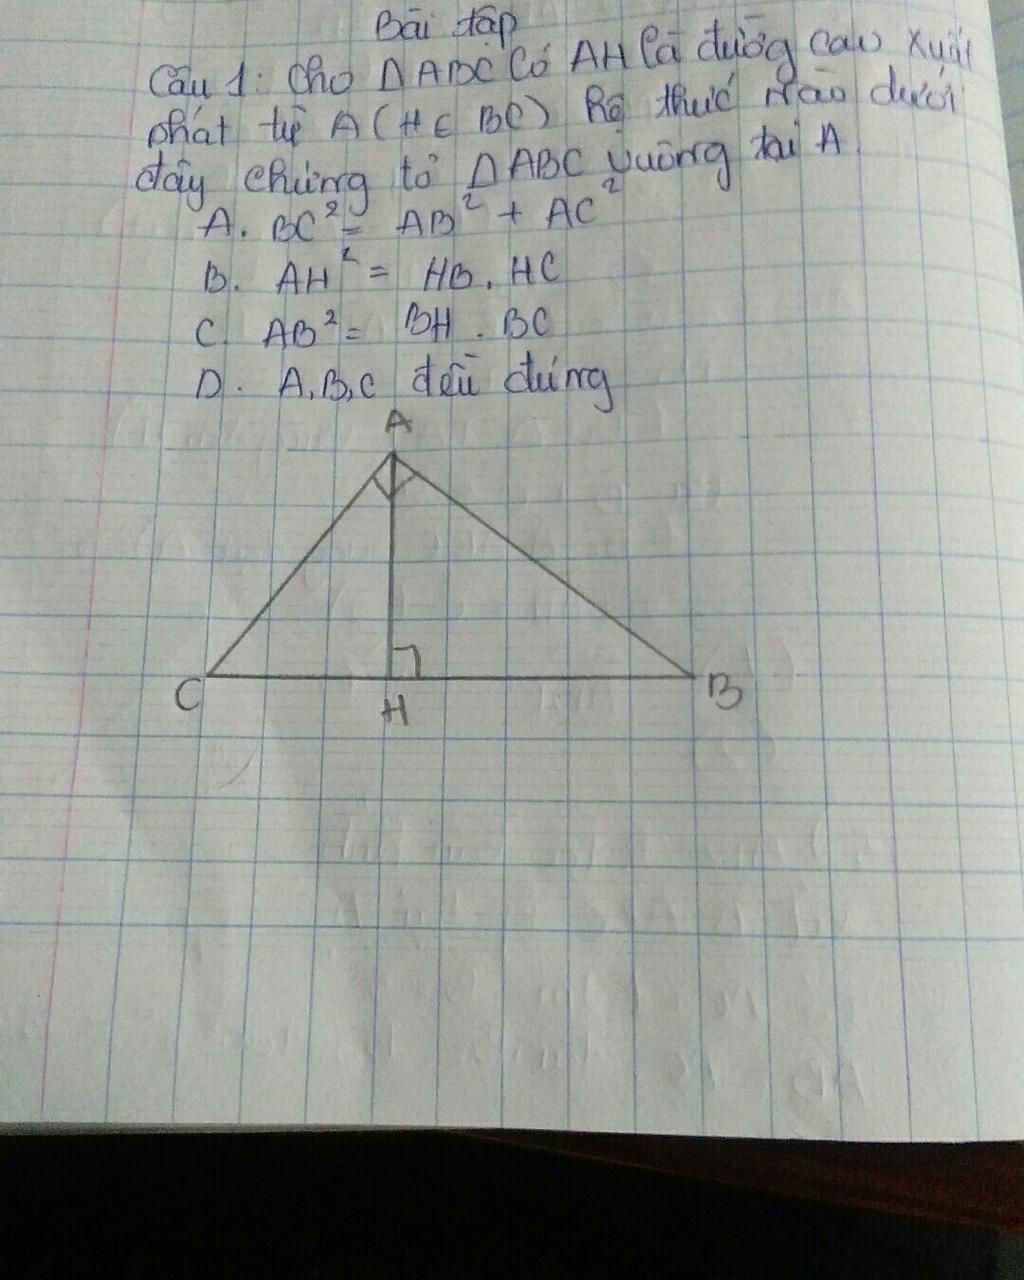 Bài tập
Câu 1: Cho ΔABC có AH là đường cao xuất
phát từ A (H ∈ BC) Hệ thức nào dưới
đây chứng tỏ ΔABC vuông tại A
A. BC² = AB² + AC²
B. AH² = HB . HC
C. AB² = BH . BC
D. A, B, C đều đúng
A
C
H
B